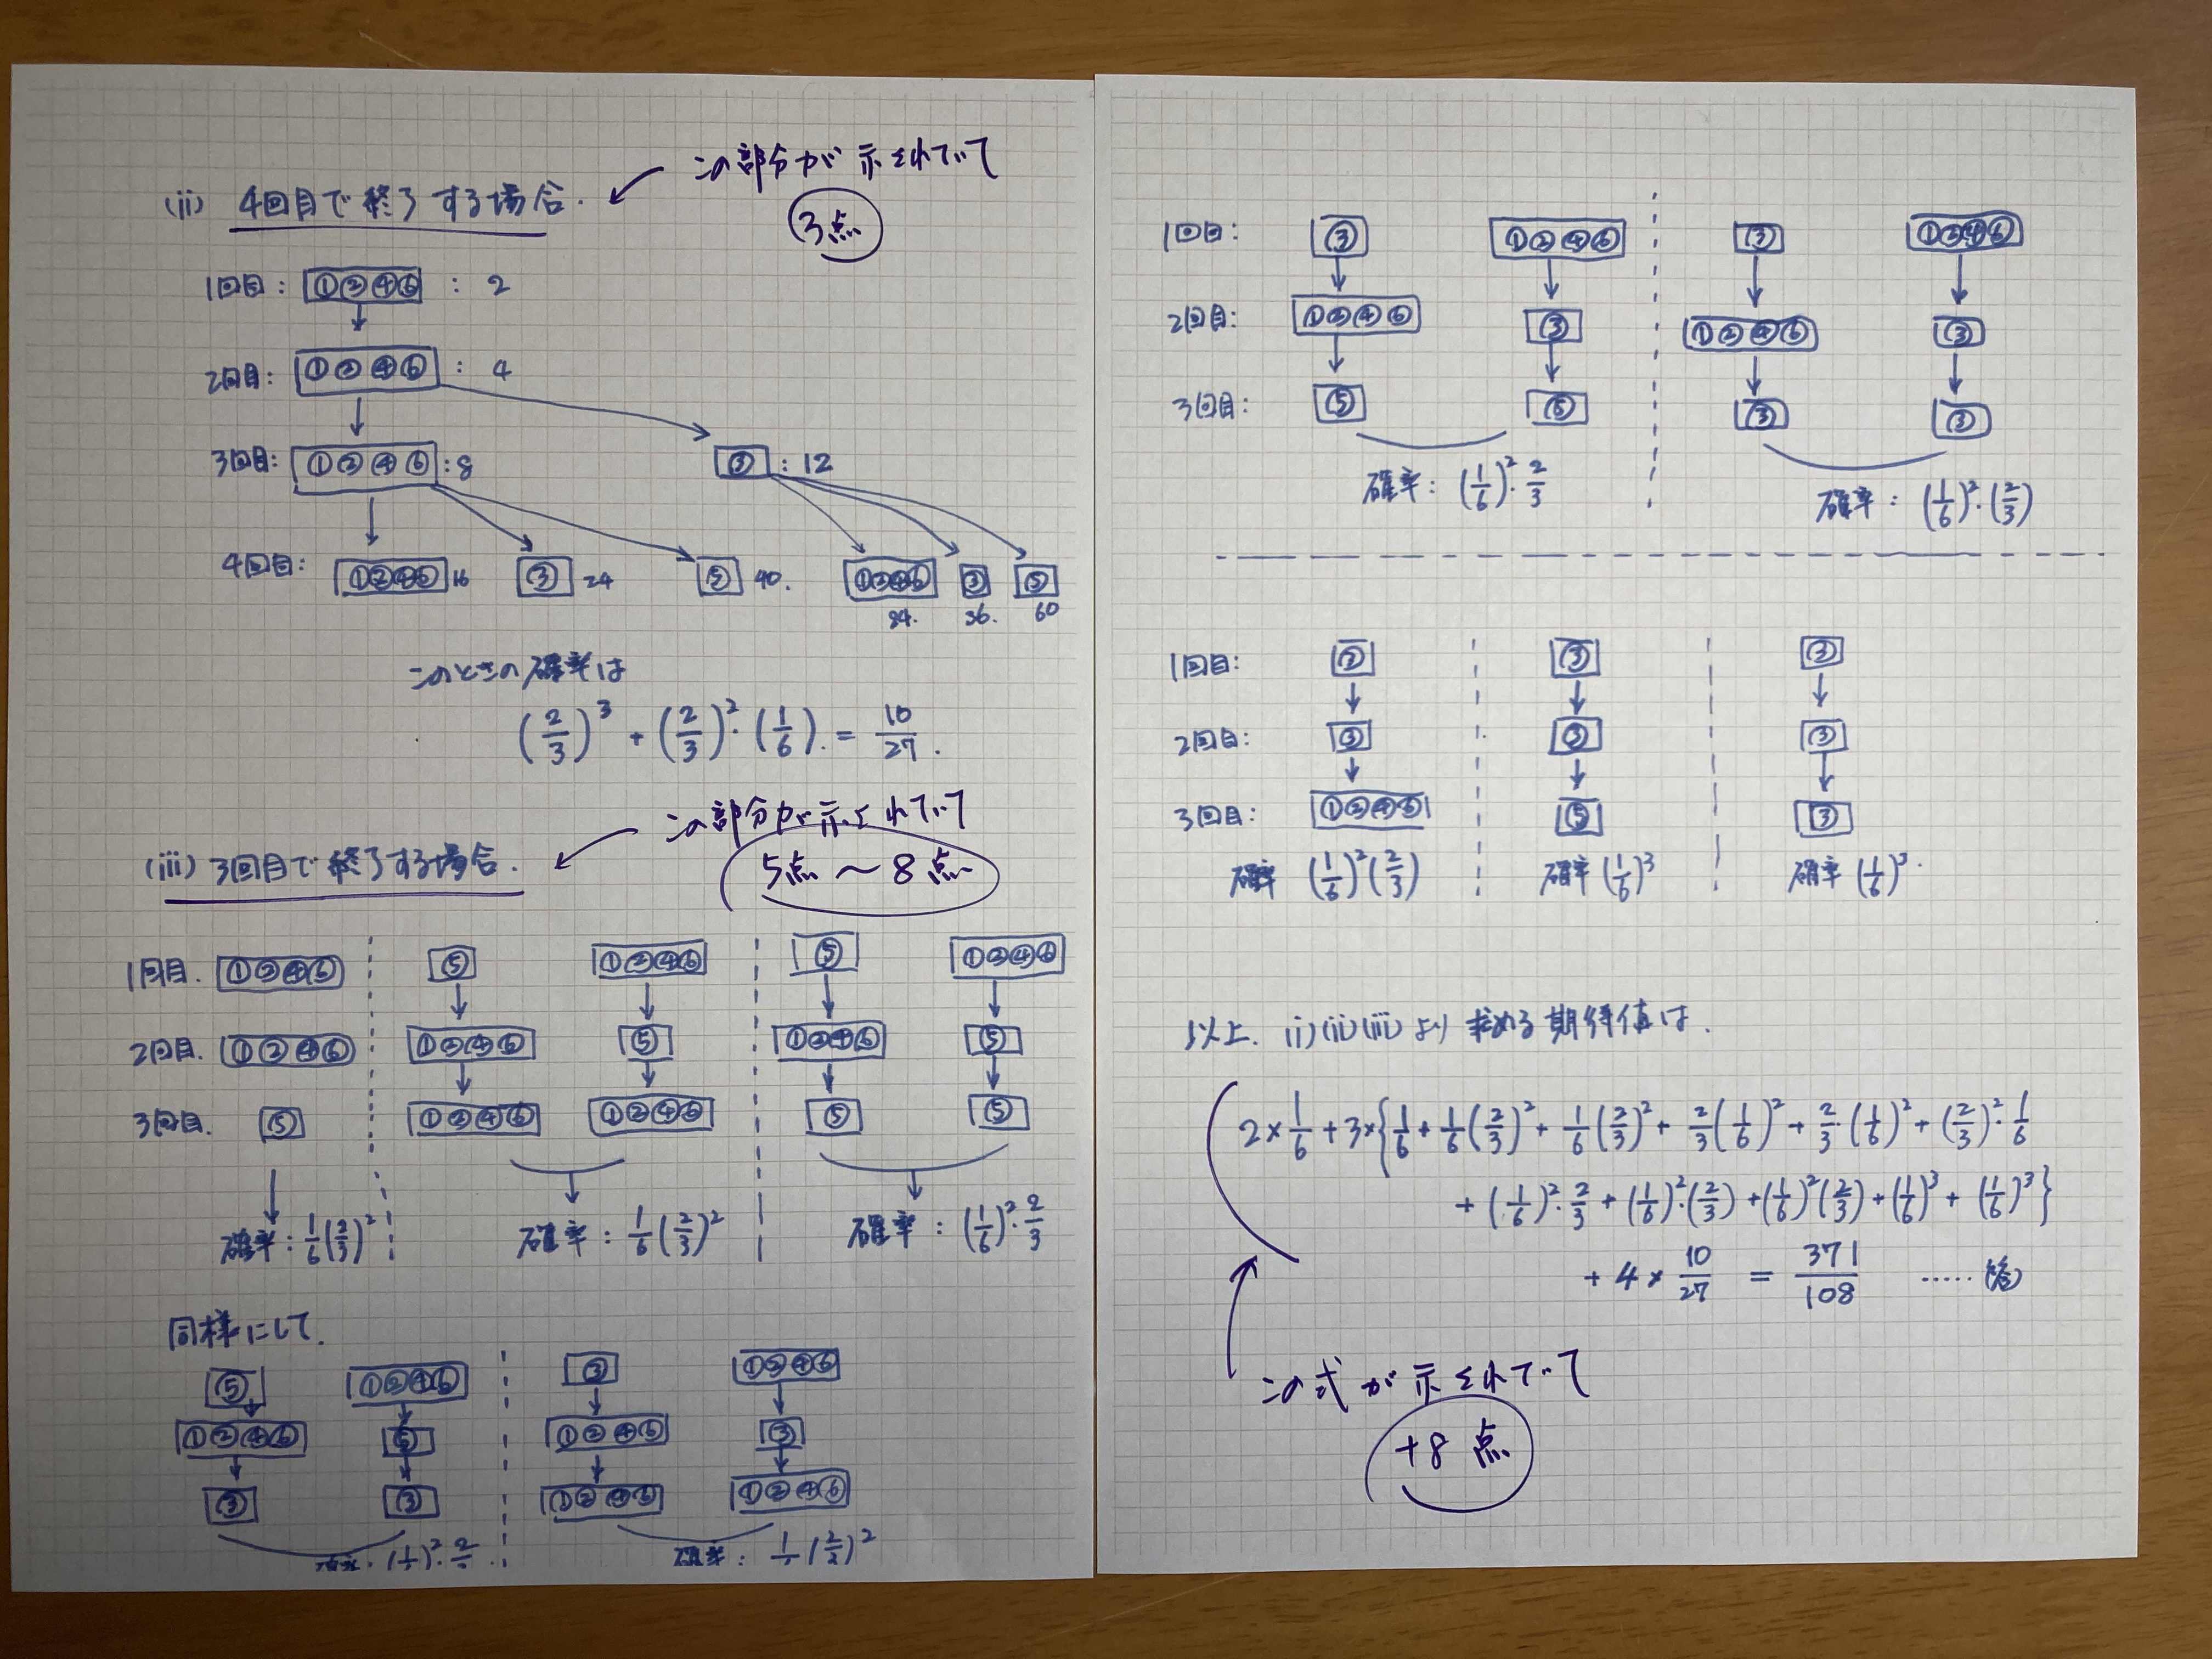 (ii) 4回目で終了する場合.
この部分が示されていて
3点
1回目: ①②④⑥ : 2
2回目: ①②④⑥ : 4
3回目: ①②④⑥ : 8 ③ : 12
4回目: ①②④⑥ 16 ③ 24 ⑤ 40. ①②④⑥ 24. ③ 36. ⑤ 60
このときの確率は
(2/3)^3 + (2/3)^2・(1/6). = 10/27.
この部分が示されていて
5点〜8点
(iii) 3回目で終了する場合.
1回目. ①②④⑥ ⑤ ①②④⑥ ⑤ ①②④⑥
2回目. ①②④⑥ ①②④⑥ ⑤ ①②④⑥ ⑤
3回目. ⑤ ①②④⑥ ①②④⑥ ⑤ ⑤
確率: 1/6(2/3)^2 確率: 1/6(2/3)^2 確率: (1/6)^2・2/3
同様にして.
⑤ ①②④⑥ ③ ①②④⑥
①②④⑥ ⑤ ①②④⑥ ③
③ ③ ①②④⑥ ①②④⑥
確率:
1回目: ③ ①②④⑥ ③ ①②④⑥
2回目: ①②④⑥ ③ ①②④⑥ ③
3回目: ⑤ ⑤ ③ ③
確率: (1/6)^2・2/3 確率: (1/6)^2・(2/3)
1回目: ③ ③
2回目: ③ ③ ③
3回目: ①②④⑥ ⑤ ③
確率 (1/6)^2(2/3) 確率 (1/6)^3 確率 (1/6)^3.
以上. (i)(ii)(iii)より求める期待値は.
2×1/6+3×{1/6+1/6(2/3)^2+1/6(2/3)^2+2/3(1/6)^2+2/3・(1/6)^2+(2/3)^2・1/6
+(1/6)^2・2/3+(1/6)^2・(2/3)+(1/6)^2(2/3)+(1/6)^3+(1/6)^3}
+4×10/27 = 371/108 ……(答)
この式が示されていて
+8点